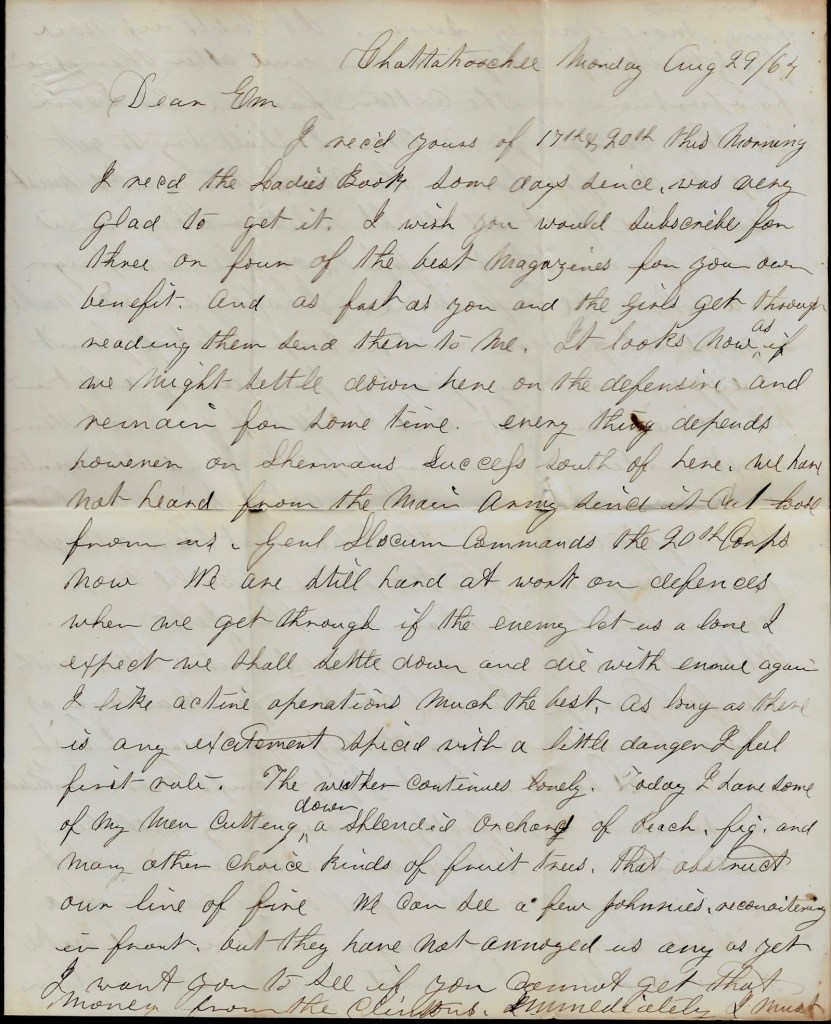 Chattahoochee Monday Aug 29/64
Dear Em
I rec'd yours of 17th & 20th this Morning
I recd the Ladies Book some days since, was very
glad to get it. I wish you would subscribe for
three or four of the best Magazines for your own
benefit. And as fast as you and the girls get through
reading them send them to me. It looks now as if
we might settle down here on the defensive and
remain for some time. every thing depends
however on Shermans success south of here. We have
not heard from the Main Army since it cut loose
from us. Genl Slocum Commands the 20th Corps
now We are still hard at work on defences
when we get through if the enemy let us a lone I
expect we shall settle down and die with ennue again
I like active operations much the best, as long as there
is any excitement spiced with a little danger I feel
first rate. The weather continues lovely. Today I have some
of my men cutting down a splendid orchard of Peach, fig, and
many other choice kinds of fruit trees, that obstruct
our line of fire We can see a few Johnnies, reconoitering
in front, but they have not annoyed us any as yet
I want you to see if you cannot get that
money from the Clintons. immediately I must